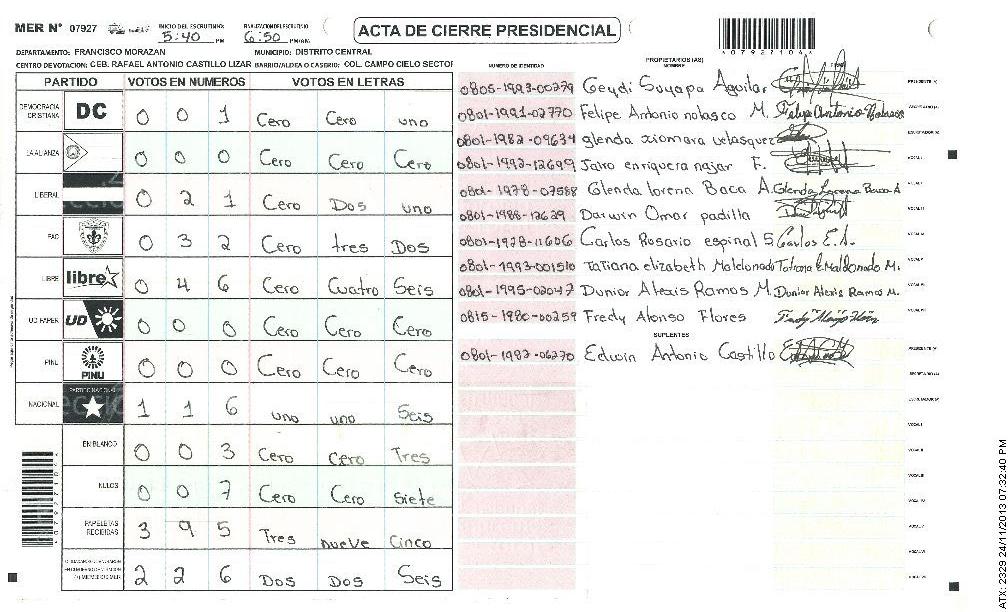 MER Nº 07927 INICIO DEL ESCRUTINIO 5:40 PM FINALIZACION DEL ESCRUTINIO 6:50 PM/AM. ACTA DE CIERRE PRESIDENCIAL
DEPARTAMENTO: FRANCISCO MORAZAN MUNICIPIO: DISTRITO CENTRAL
CENTRO DE VOTACION: CEB. RAFAEL ANTONIO CASTILLO LIZAR BARRIO/ALDEA O CASERIO: COL. CAMPO CIELO SECTOR
07927104
PARTIDO VOTOS EN NUMEROS VOTOS EN LETRAS
DEMOCRACIA CRISTIANA DC 0 0 1 Cero Cero uno
LA ALIANZA 0 0 0 Cero Cero Cero
LIBERAL 0 2 1 Cero Dos uno
PAC 0 3 2 Cero tres Dos
LIBRE libre 0 4 6 Cero Cuatro Seis
UD FAPER UD 0 0 0 Cero Cero Cero
PINU PINU 0 0 0 Cero Cero Cero
NACIONAL PARTIDO NACIONAL 1 1 6 uno uno Seis
EN BLANCO 0 0 3 Cero Cero Tres
NULOS 0 0 7 Cero Cero Siete
PAPELETAS RECIBIDAS 3 9 5 Tres nueve Cinco
2 2 6 Dos Dos Seis
NUMERO DE IDENTIDAD PROPIETARIOS (AS) NOMBRE
0805-1993-00279 Geydi Suyapa Aguilar PRESIDENTE (A)
0801-1991-02770 Felipe Antonio nolasco M. Felipe Antonio Nolasco SECRETARIO (A)
0801-1982-09634 glenda xiomara velasquez ESCRUTADOR (A)
0801-1992-12699 Jairo enriquera najar F. VOCAL I
0801-1978-07588 Glenda lorena Baca A. Glenda Lorena Baca A VOCAL II
0801-1988-12629 Darwin Omar padilla VOCAL III
0801-1978-11606 Carlos Rosario espinal S Carlos E.S. VOCAL IV
0801-1993-001510 Tatiana elizabeth Maldonado Tatiana E. Maldonado M. VOCAL V
0801-1995-02047 Dunior Alexis Ramos M. Dunior Alexis Ramos M. VOCAL VI
0815-1980-00259 Fredy Alonso Flores VOCAL VII
SUPLENTES
0801-1982-06270 Edwin Antonio Castillo PRESIDENTE (A)
SECRETARIO (A)
ESCRUTADOR (A)
VOCAL I
VOCAL II
VOCAL III
VOCAL IV
VOCAL V
VOCAL VI
VOCAL VII
ATX: 2329 24/11/2013 07:32:40 PM